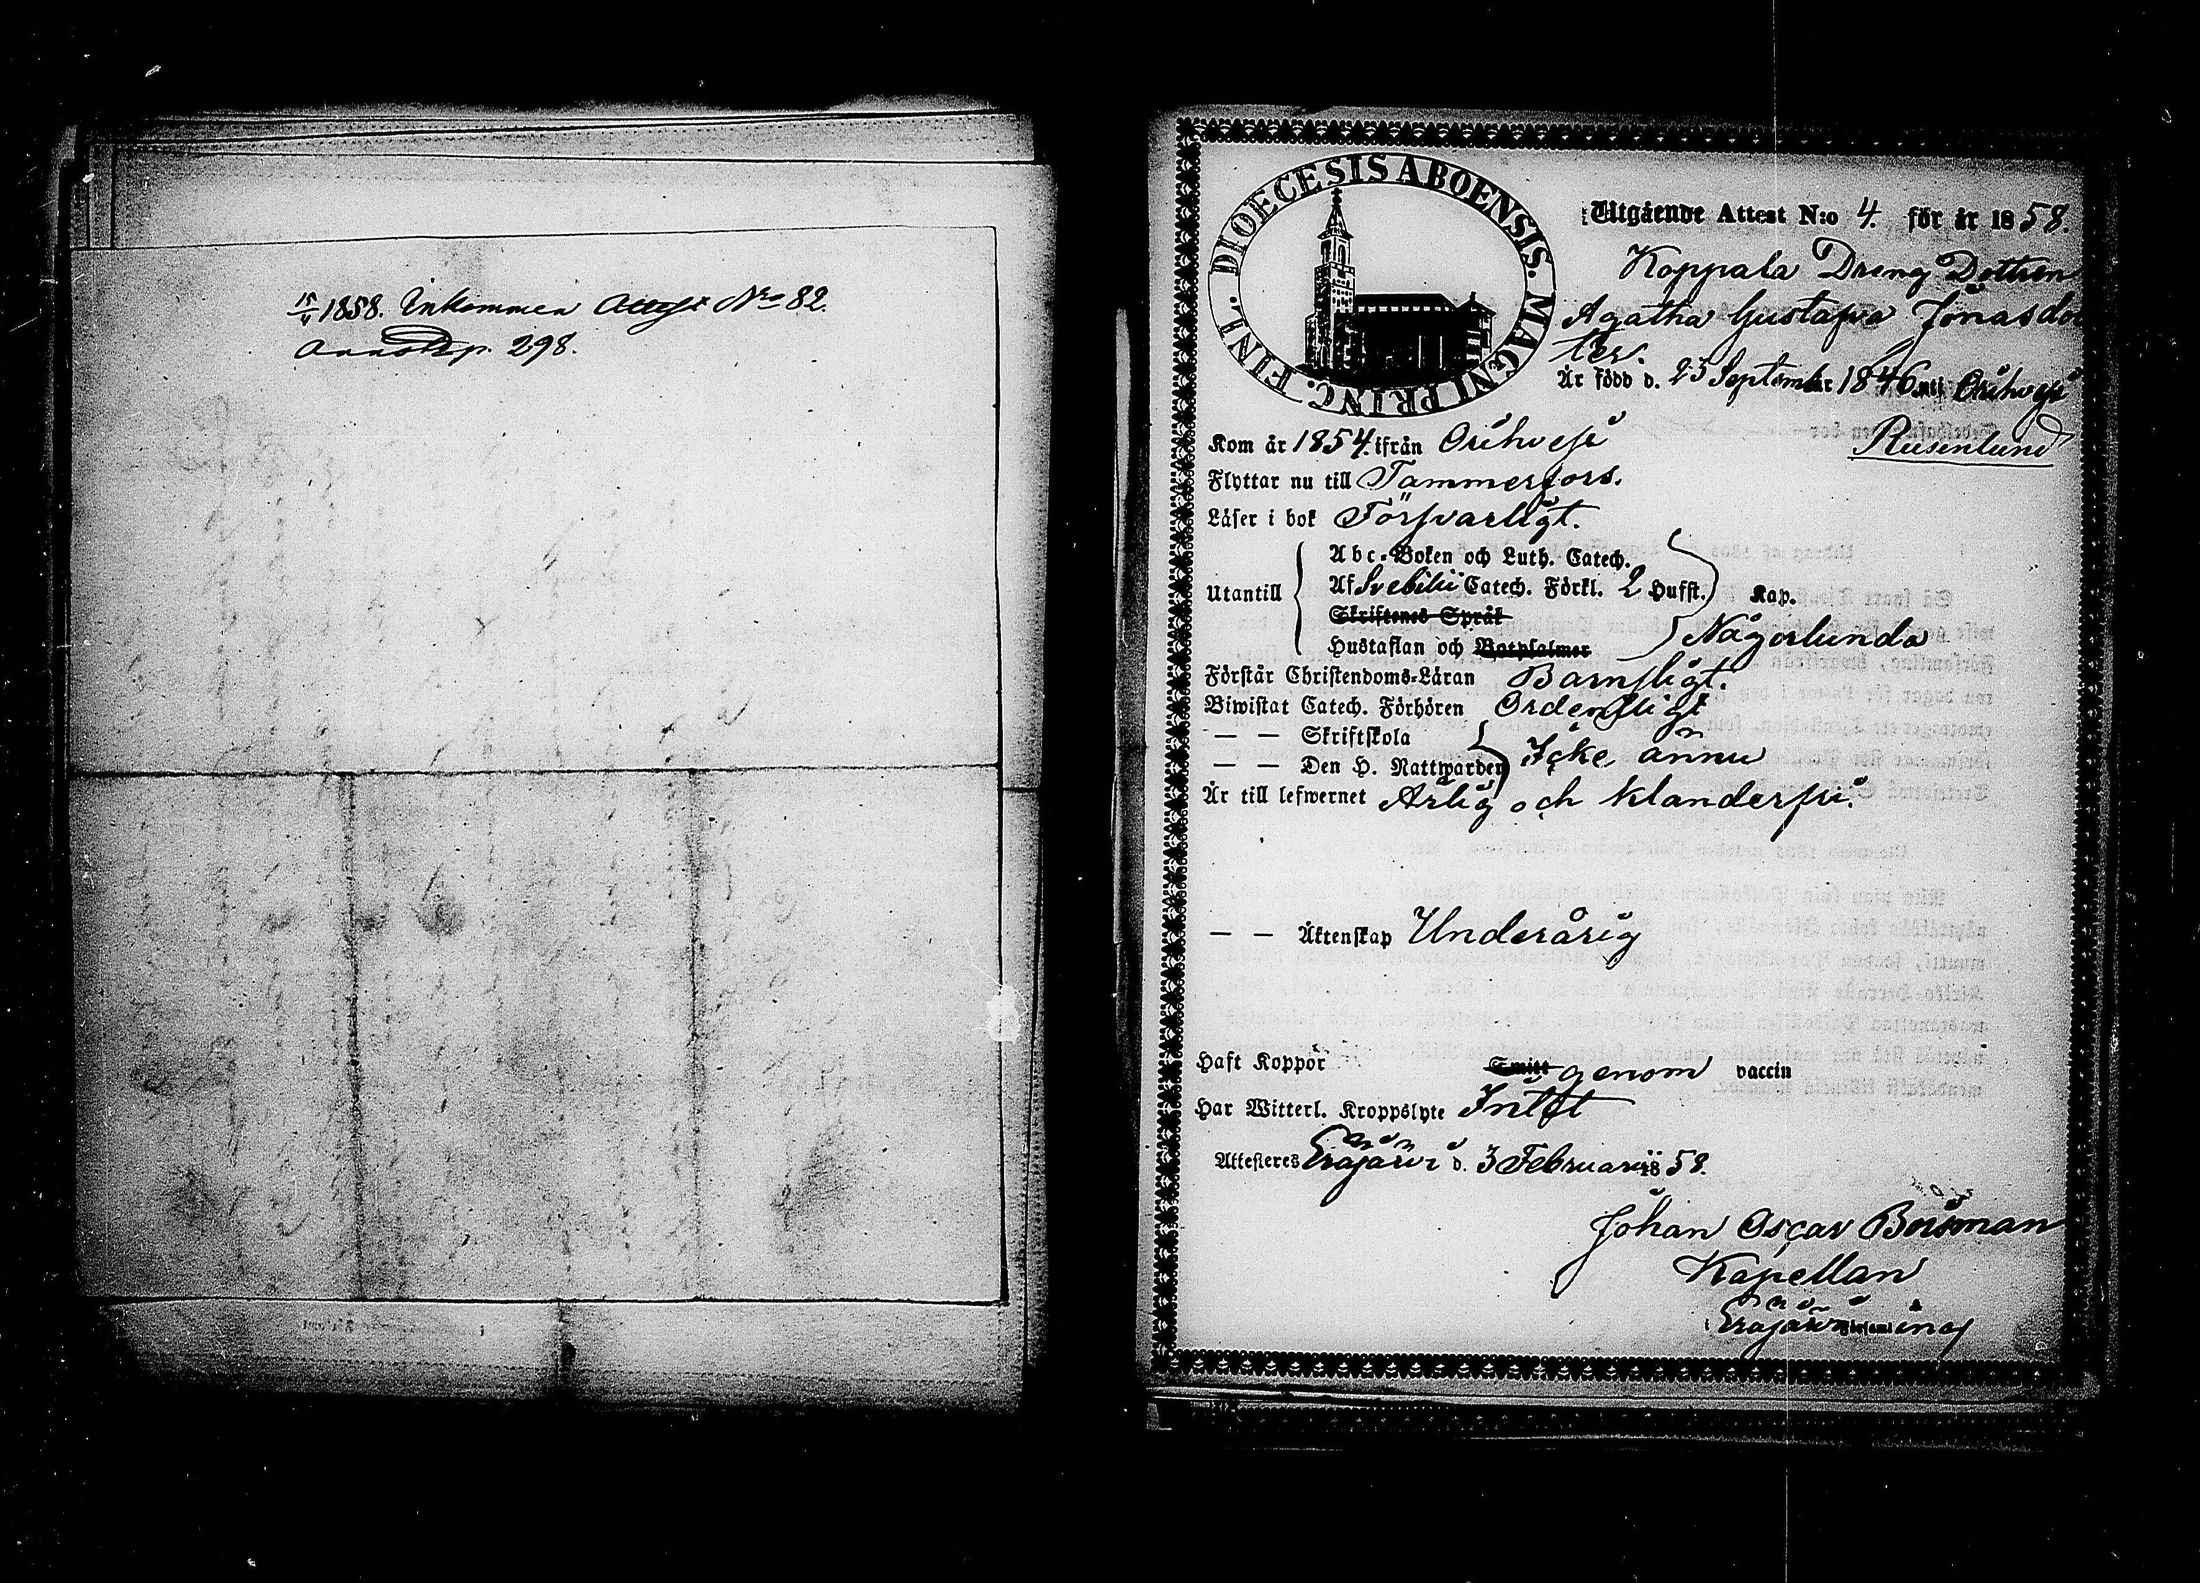 15/4 1858. Inkommen Attest No 82.
p. 298.
DIOECESIS ABOENSIS. MAGNI PRINC. FINL.
Utgående Attest N:o 4. för år 1858.
Koppala Dreng Dottren
Agatha Gustafva Jonasdot
ter.
Är född d. 25 September 1846 uti Orihvesi
Kom år 1854. ifrån Orihvesi
Rusenlund
Flyttar nu till Tammerfors.
Läser i bok Försvarligt.
Abc-Boken och Luth. Catech.
Utantill Af Svebilii Catech. Förkl. 2 Hufst. Kap.
Skriftenes Språk
Hustaflan och Botpsalmer Någorlunda
Förstår Christendoms-Läran Barnsligt.
Biwistat Catech. Förhören Ordentligt
— — Skriftskola
— — Den H. Nattwarden Icke ännu
Är till lefwernet Ärlig och klanderfri.
— — Äktenskap Underårig
Haft Koppor Smitt genom vaccin
Har Witterl. Kroppslyte Intet
Attesteres Eräjärvi d. 3 Februarii 1858.
Johan Oscar Boisman
Kapellan
i Eräjärvi